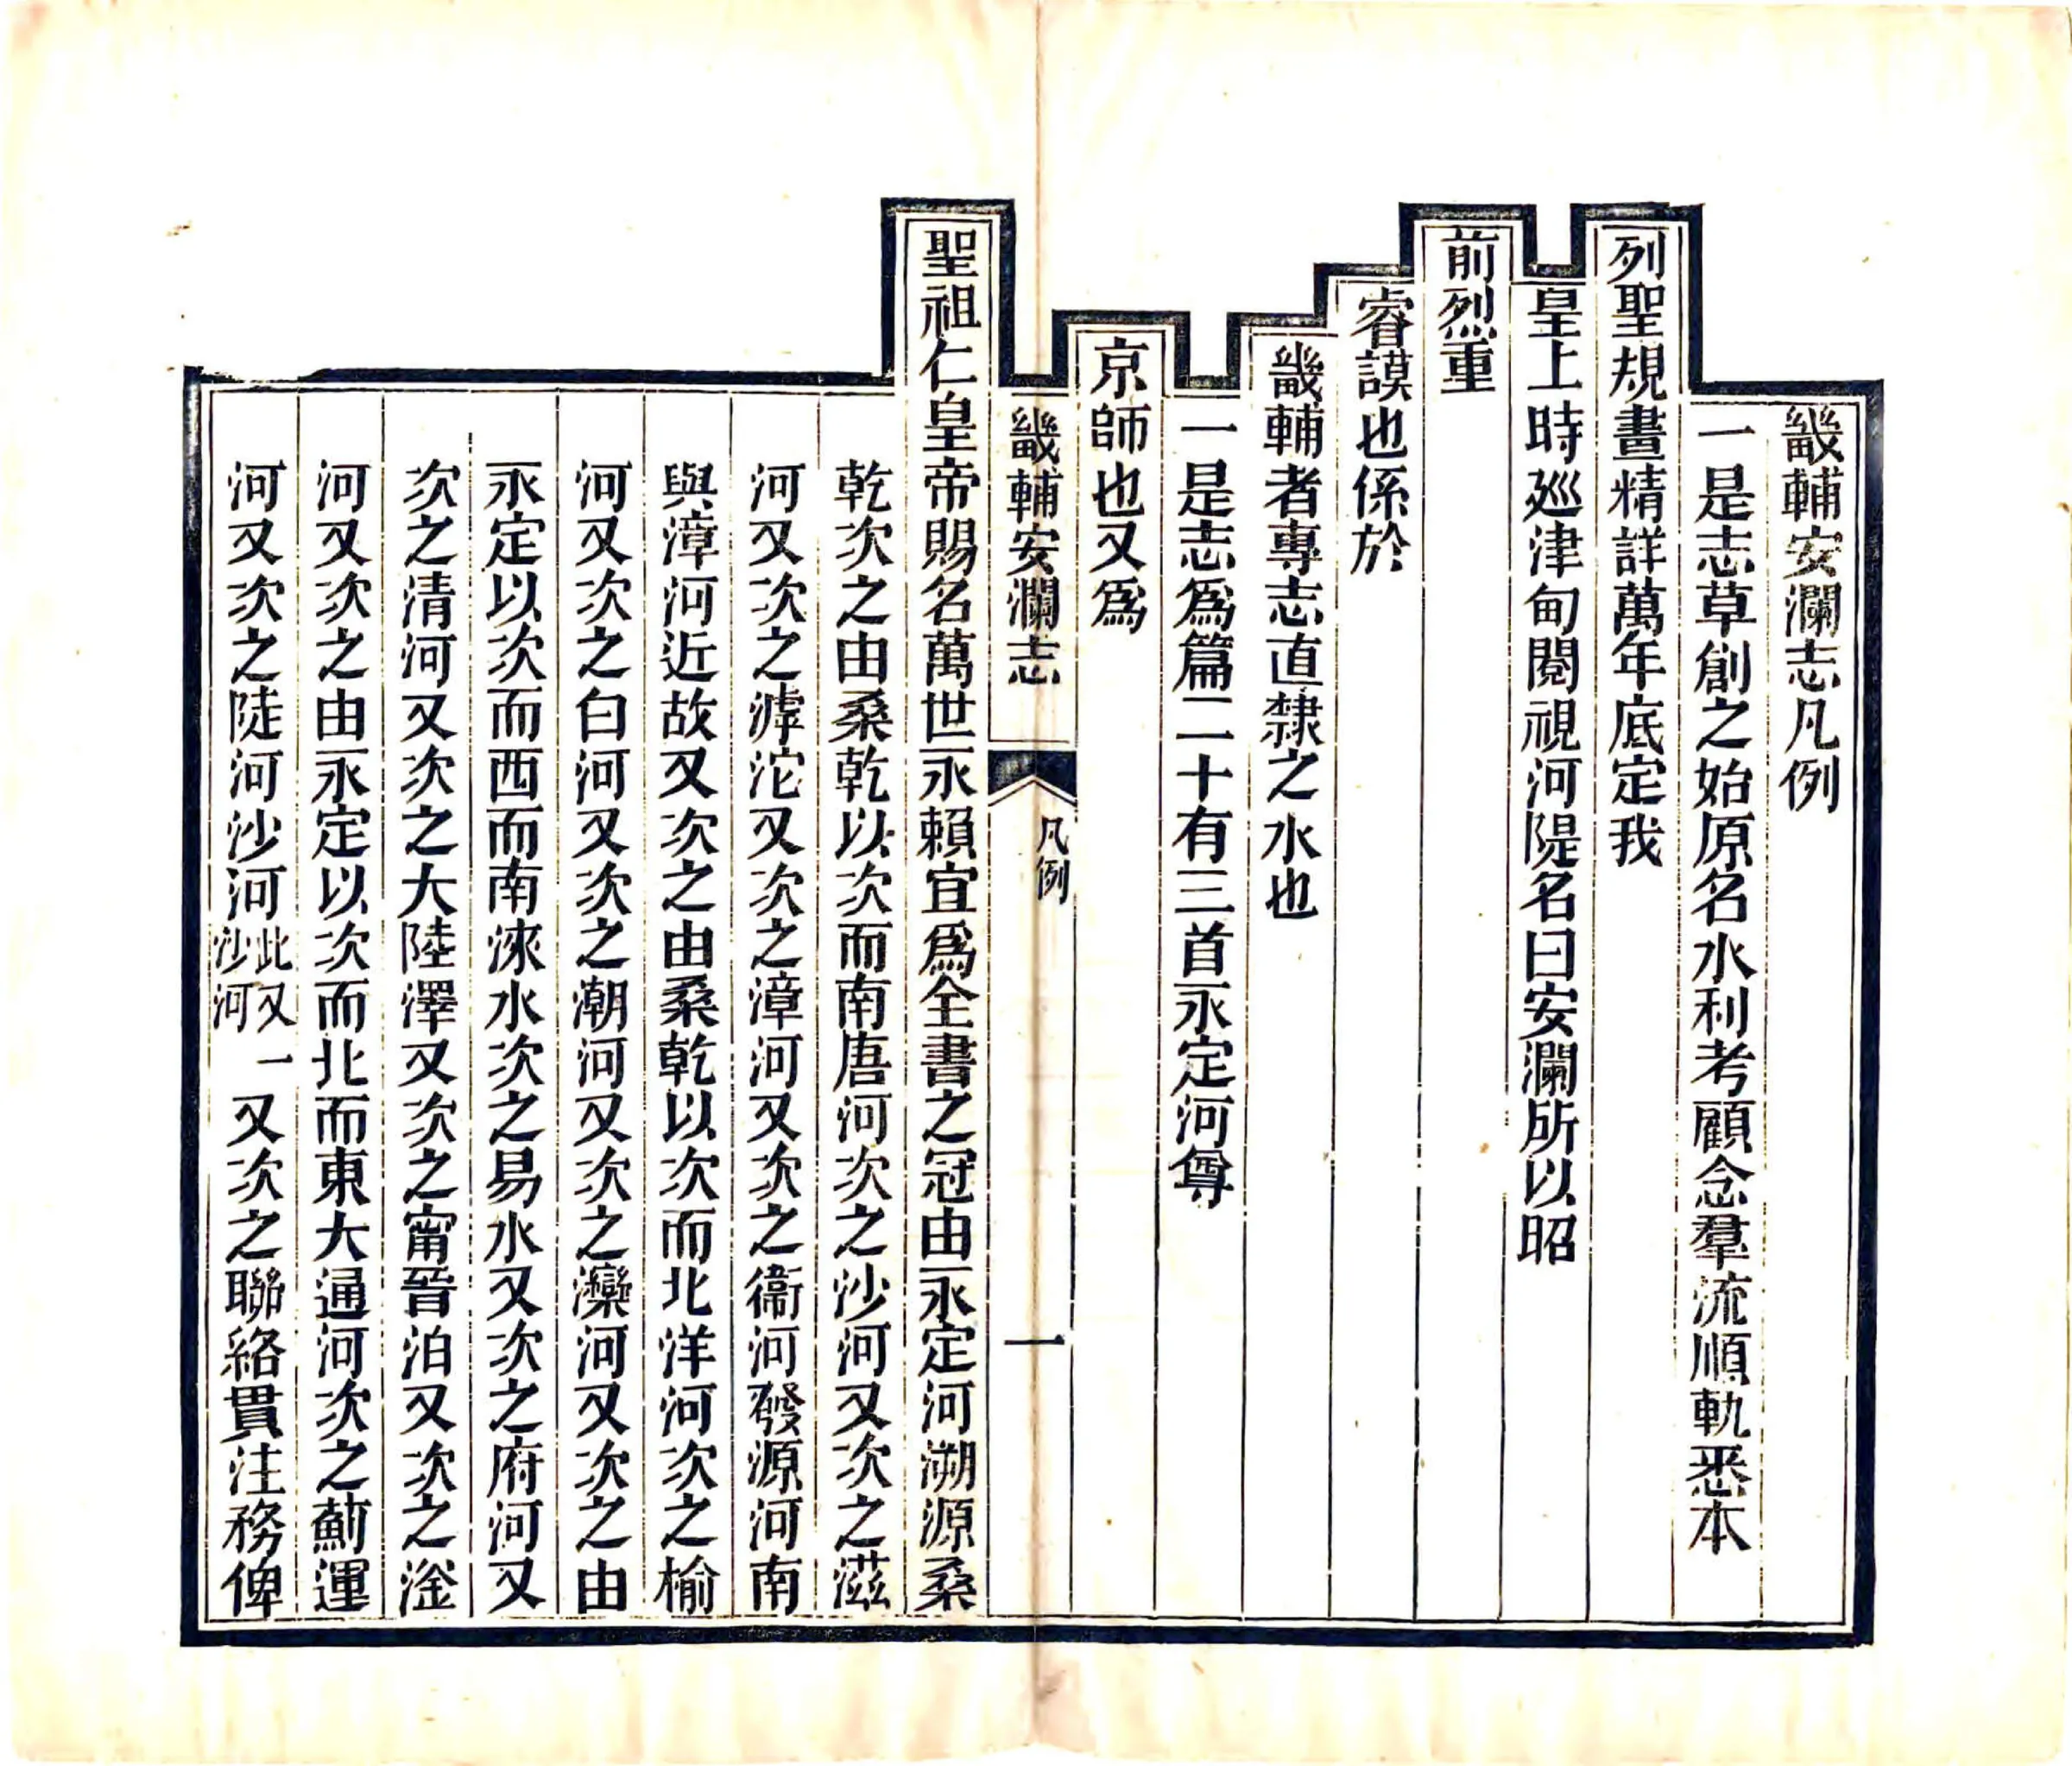 畿輔安瀾志凡例
一是志草創之始原名水利考顧念羣流順軌悉本
列聖規畫精詳萬年底定我
皇上時廵津甸閱視河隄名曰安瀾所以昭
前烈重
睿謨也係於
畿輔者專志直隸之水也
一是志爲篇二十有三首永定河尊
京師也又爲
畿輔安瀾志
凡例
一
聖祖仁皇帝賜名萬世永賴宜爲全書之冠由永定河溯源桑
乾次之由桑乾以次而南唐河次之沙河又次之滋
河又次之滹沱又次之漳河又次之衞河發源河南
與漳河近故又次之由桑乾以次而北洋河次之榆
河又次之白河又次之潮河又次之灤河又次之由
永定以次而西而南淶水次之易水又次之府河又
次之清河又次之大陸澤又次之甯晉泊又次之滏
河又次之由永定以次而北而東大通河次之薊運
河又次之陡河沙河此又一沙河又次之聯絡貫注務俾